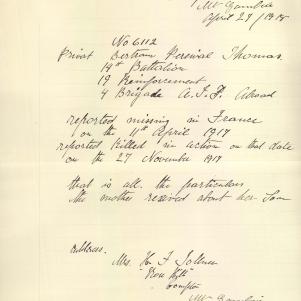 Mt Gambier
April 27 / 1918
No 6112
Privat Bertram Percival Thomas
14th Battalion
19 Reinforcement
4 Brigade A.I.F. Abroad
reported missing in France
on the 11th April 1917
reported killed in action on that date
on the 27 November 1917
that is all the particulars
the mother received about her Son
address
Mrs. H F
Compton
Mt Gambier